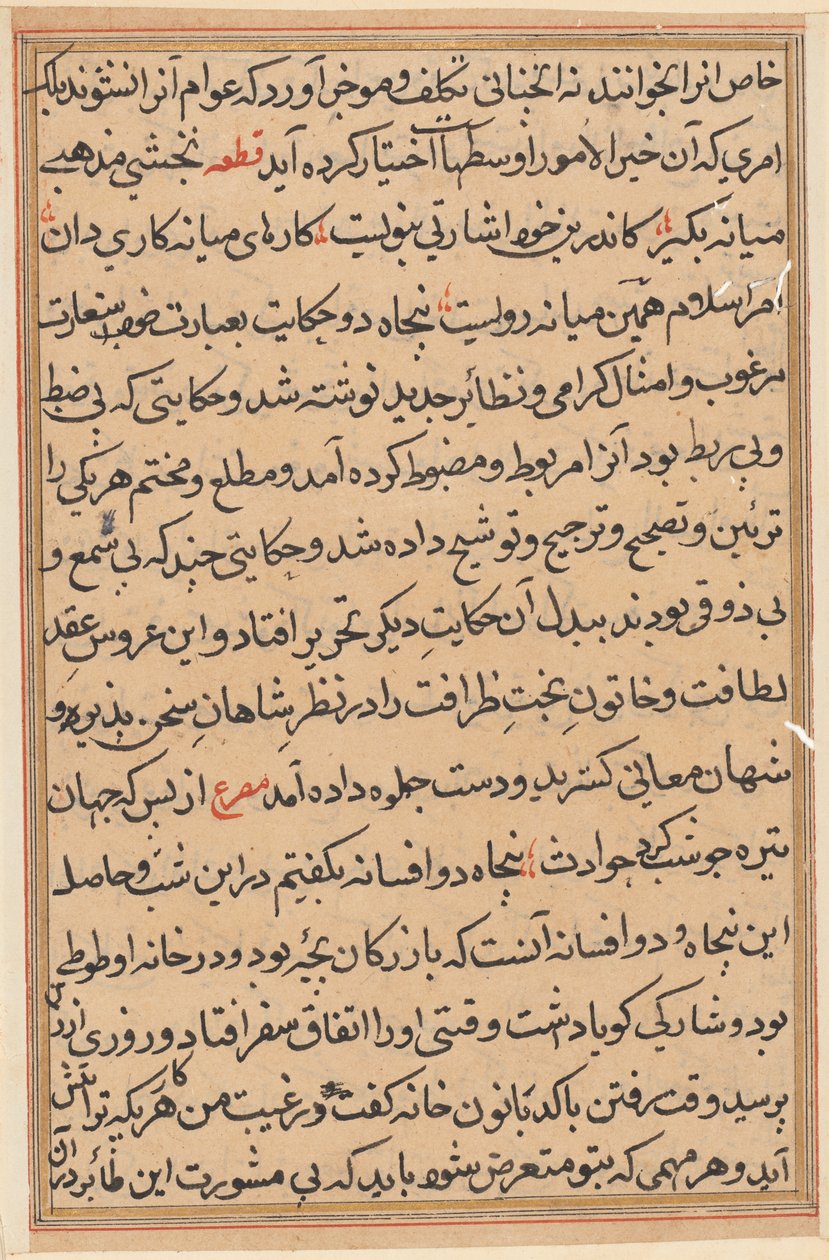 خاص انرا بخوانند نه انجنانی تکلف و موخر آورد که عوام آنرا نشنوند بلکه
امری که آن خیر الامور اوسطهاست اختیار کرده آید قطعه نخشبی مذهبی
میانه بکیر کاندرین خود اشارتی نبویست کارهای میانه کاری دان
امر اسلام همین میانه رویست پنجاه دو حکایت بعبارت خوب استعارت
مرغوب و امثال کرامی و نظائر جدید نوشته شد و حکایتی که بی ضبط
و بی ربط بود آنرا مربوط و مضبوط کرده آمد و مطلع و مختم هر یکی را
تزئین و تصحیح و ترجیح و توشیح داده شد و حکایتی چند که بی سمع و
بی ذوق بودند ببدل آن حکایتِ دیکر تحریر افتاد و این عروسِ عقدِ
لطافت و خاتونِ تختِ ظرافت را در نظرِ شاهانِ سخن پذیر و
شهان معانی کستر ید و دست جلوه داده آمد مصرع از بس که جهان
تیره جو شب کرد حوادث پنجاه دو افسانه بکفتیم در این شب و حاصل
این پنجاه و دو افسانه آنست که بازرکان بچهٔ بود و در خانه او طوطی
بود و شارکی کویا داشت وقتی او را اتفاق سفر افتاد و روزی
پرسید وقت رفتن با کدبانون خانه کفت در غیبت من هر کاریکه ترا پیش
آید و هر مهمی که بتو متعرض شود باید که بی مشورت این طائر در آن